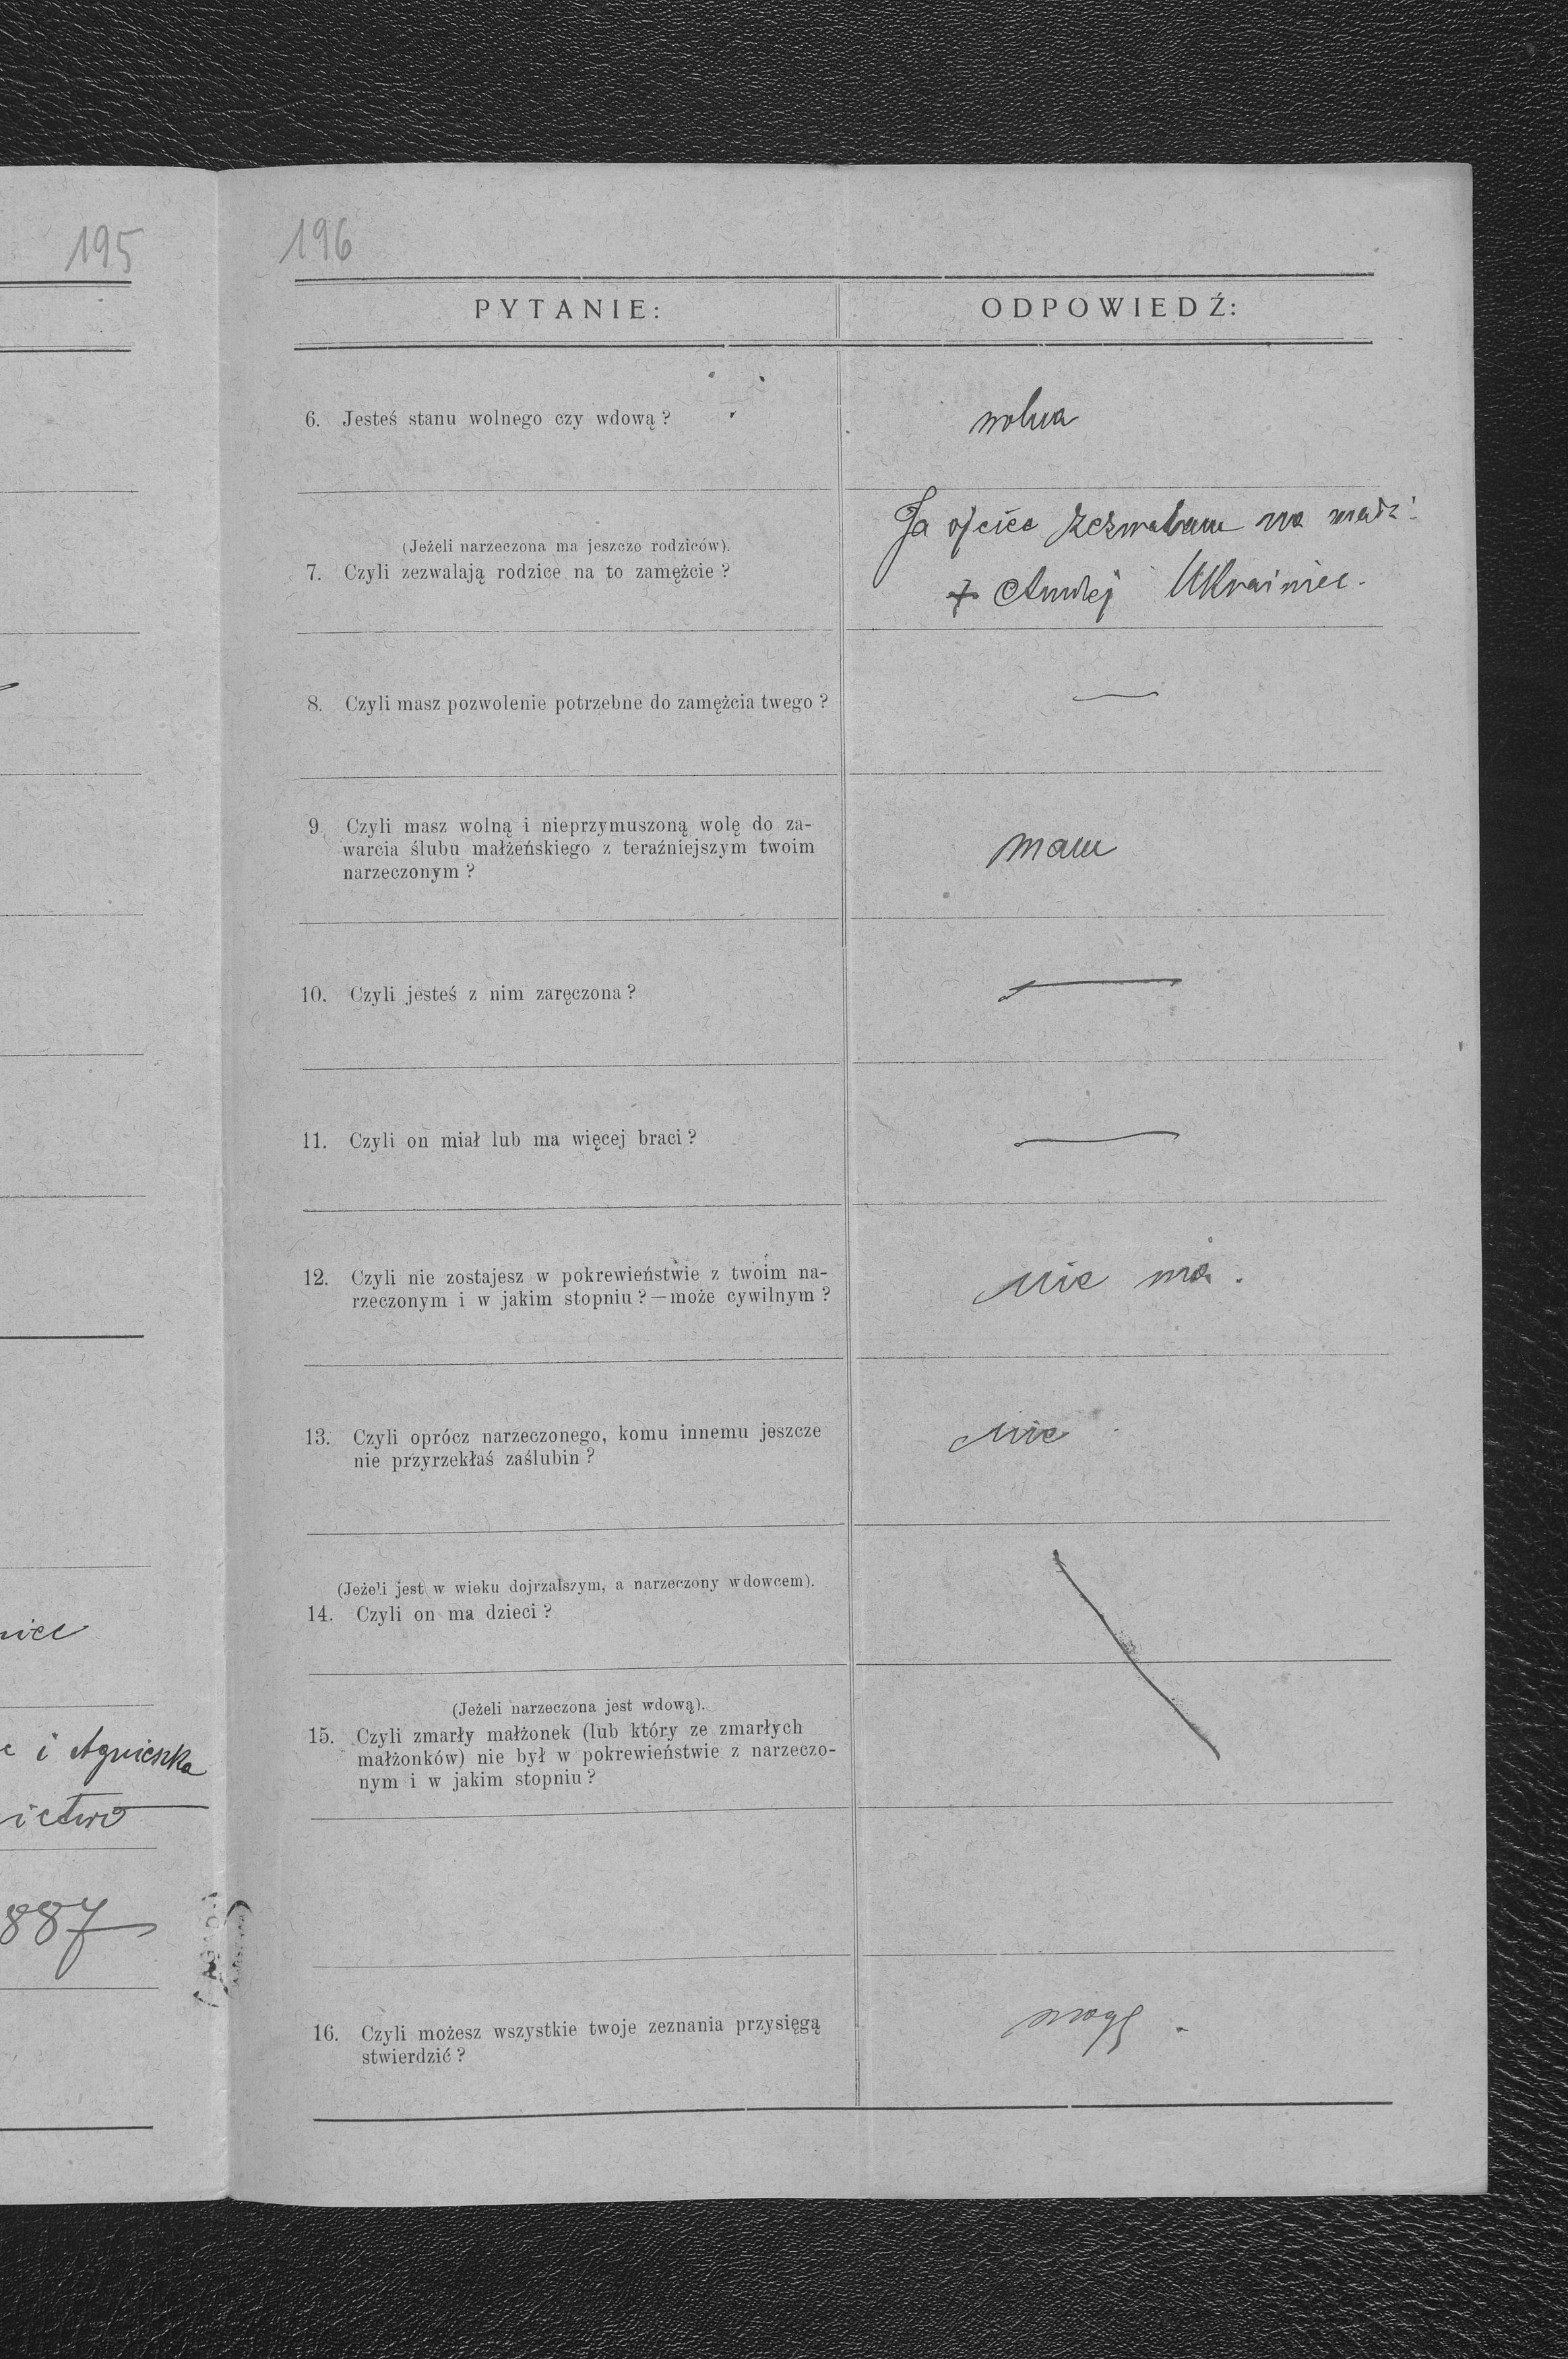 195
niec
i Agnieszka
nictwo
887
196
PYTANIE:
ODPOWIEDŹ:
6. Jesteś stanu wolnego czy wdową?
wolna
(Jeżeli narzeczona ma jeszcze rodziców).
7. Czyli zezwalają rodzice na to zamężcie?
Ja ojciec zezwalam na małż:
+ Andrej Ukrainiec.
8. Czyli masz pozwolenie potrzebne do zamężcia twego?
—
9. Czyli masz wolną i nieprzymuszoną wolę do za-
warcia ślubu małżeńskiego z teraźniejszym twoim
narzeczonym?
mam
10. Czyli jesteś z nim zaręczona?
—
11. Czyli on miał lub ma więcej braci?
—
12. Czyli nie zostajesz w pokrewieństwie z twoim na-
rzeczonym i w jakim stopniu?—może cywilnym?
nie ma.
13. Czyli oprócz narzeczonego, komu innemu jeszcze
nie przyrzekłaś zaślubin?
nie
(Jeżeli jest w wieku dojrzalszym, a narzeczony wdowcem).
14. Czyli on ma dzieci?
(Jeżeli narzeczona jest wdową).
15. Czyli zmarły małżonek (lub który ze zmarłych
małżonków) nie był w pokrewieństwie z narzeczo-
nym i w jakim stopniu?
16. Czyli możesz wszystkie twoje zeznania przysięgą
stwierdzić?
mogę.